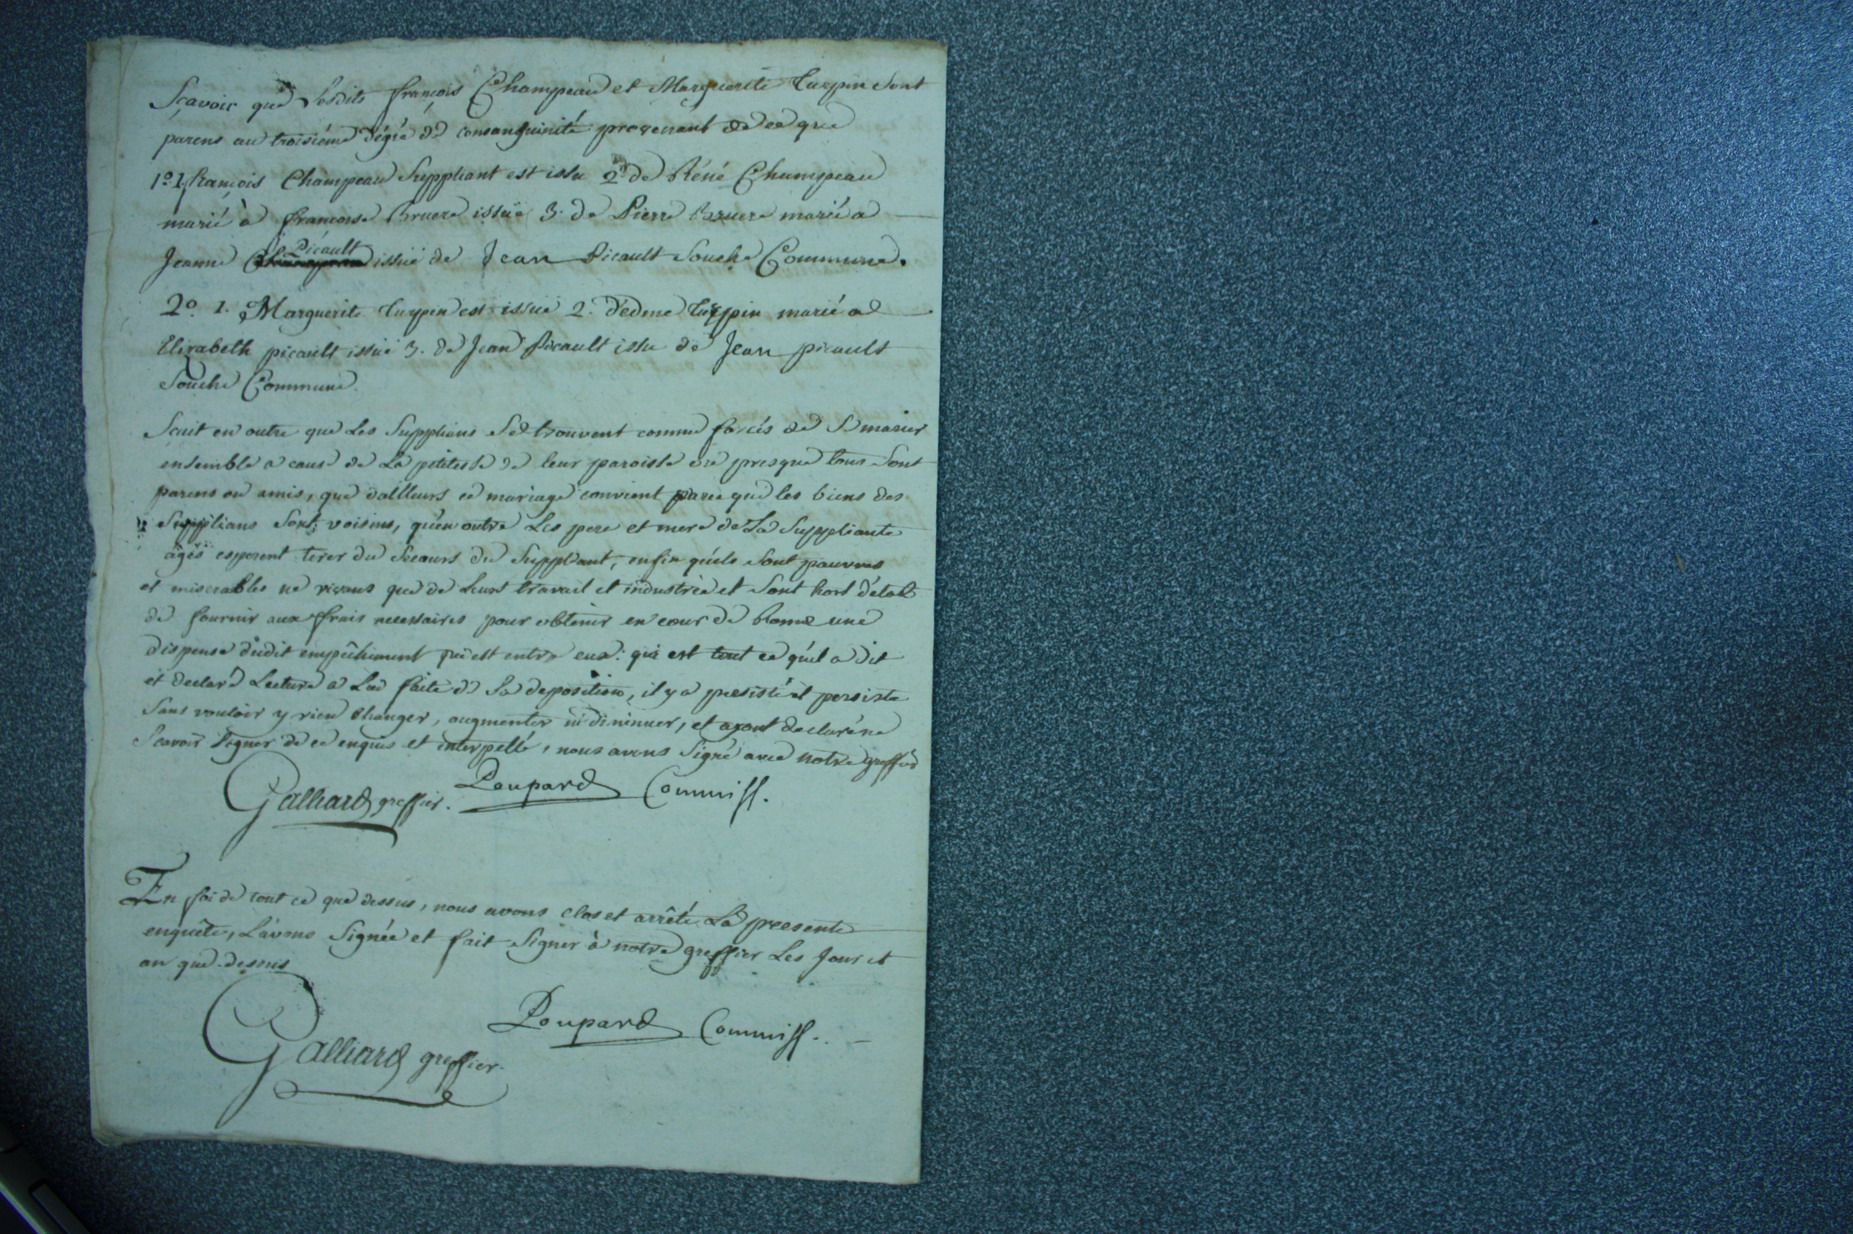 Sçavoir que Lesdits françois Champeau et Marguerite Turpin sont
parens au troisiéme dégré de consanguinité provenant de ce que
1º. 1 françois Champeau Suppliant est issu 2º. de Réné Champeau
marié à françoise Bruere issüe 3. de Pierre Bruere marié a
Jeanne Picault issüe de Jean Picault Souche Commune.
2º. 1. Marguerite Turpin est issüe 2. d'edme Turpin marié a
Elizabeth picault issüe 3. de Jean Picault issu de Jean picault
Souche Commune.
Scait en outre que Les Supplians Se trouvent comme forcés de Se marier
ensemble a cause de La petitesse de leur paroisse où presque tous Sont
parens ou amis, que dailleurs ce mariage convient parce que les biens des
Supplians Sont voisins, qu'en outre Les pere et mere de La Suppliante
âgés esperent tirer du Secours du Suppliant, enfin qu'ils Sont pauvres
et miserables ne vivans que de Leurs travail et industrie et Sont hors d'état
de fournir aux frais necessaires pour obtenir en cour de Rome une
dispense dudit empêchement qui est entre eux. qui est tout ce qu'il a dit
et declaré Lecture a Lui faite de Sa deposition, il y a persisté et persiste
Sans vouloir y rien changer, augmenter ni diminuer, et ayant declaré ne
Scavoir Signer de ce enquis et interpellé, nous avons Signé avec notre greffier
Galliard greffier. Poupard Commiss.
En foi de tout ce que dessus, nous avons clos et arrêté La presente
enquête, L'avons Signée et fait Signer à notre greffier Les Jour et
an que dessus
Poupard Commiss.
Galliard greffier.